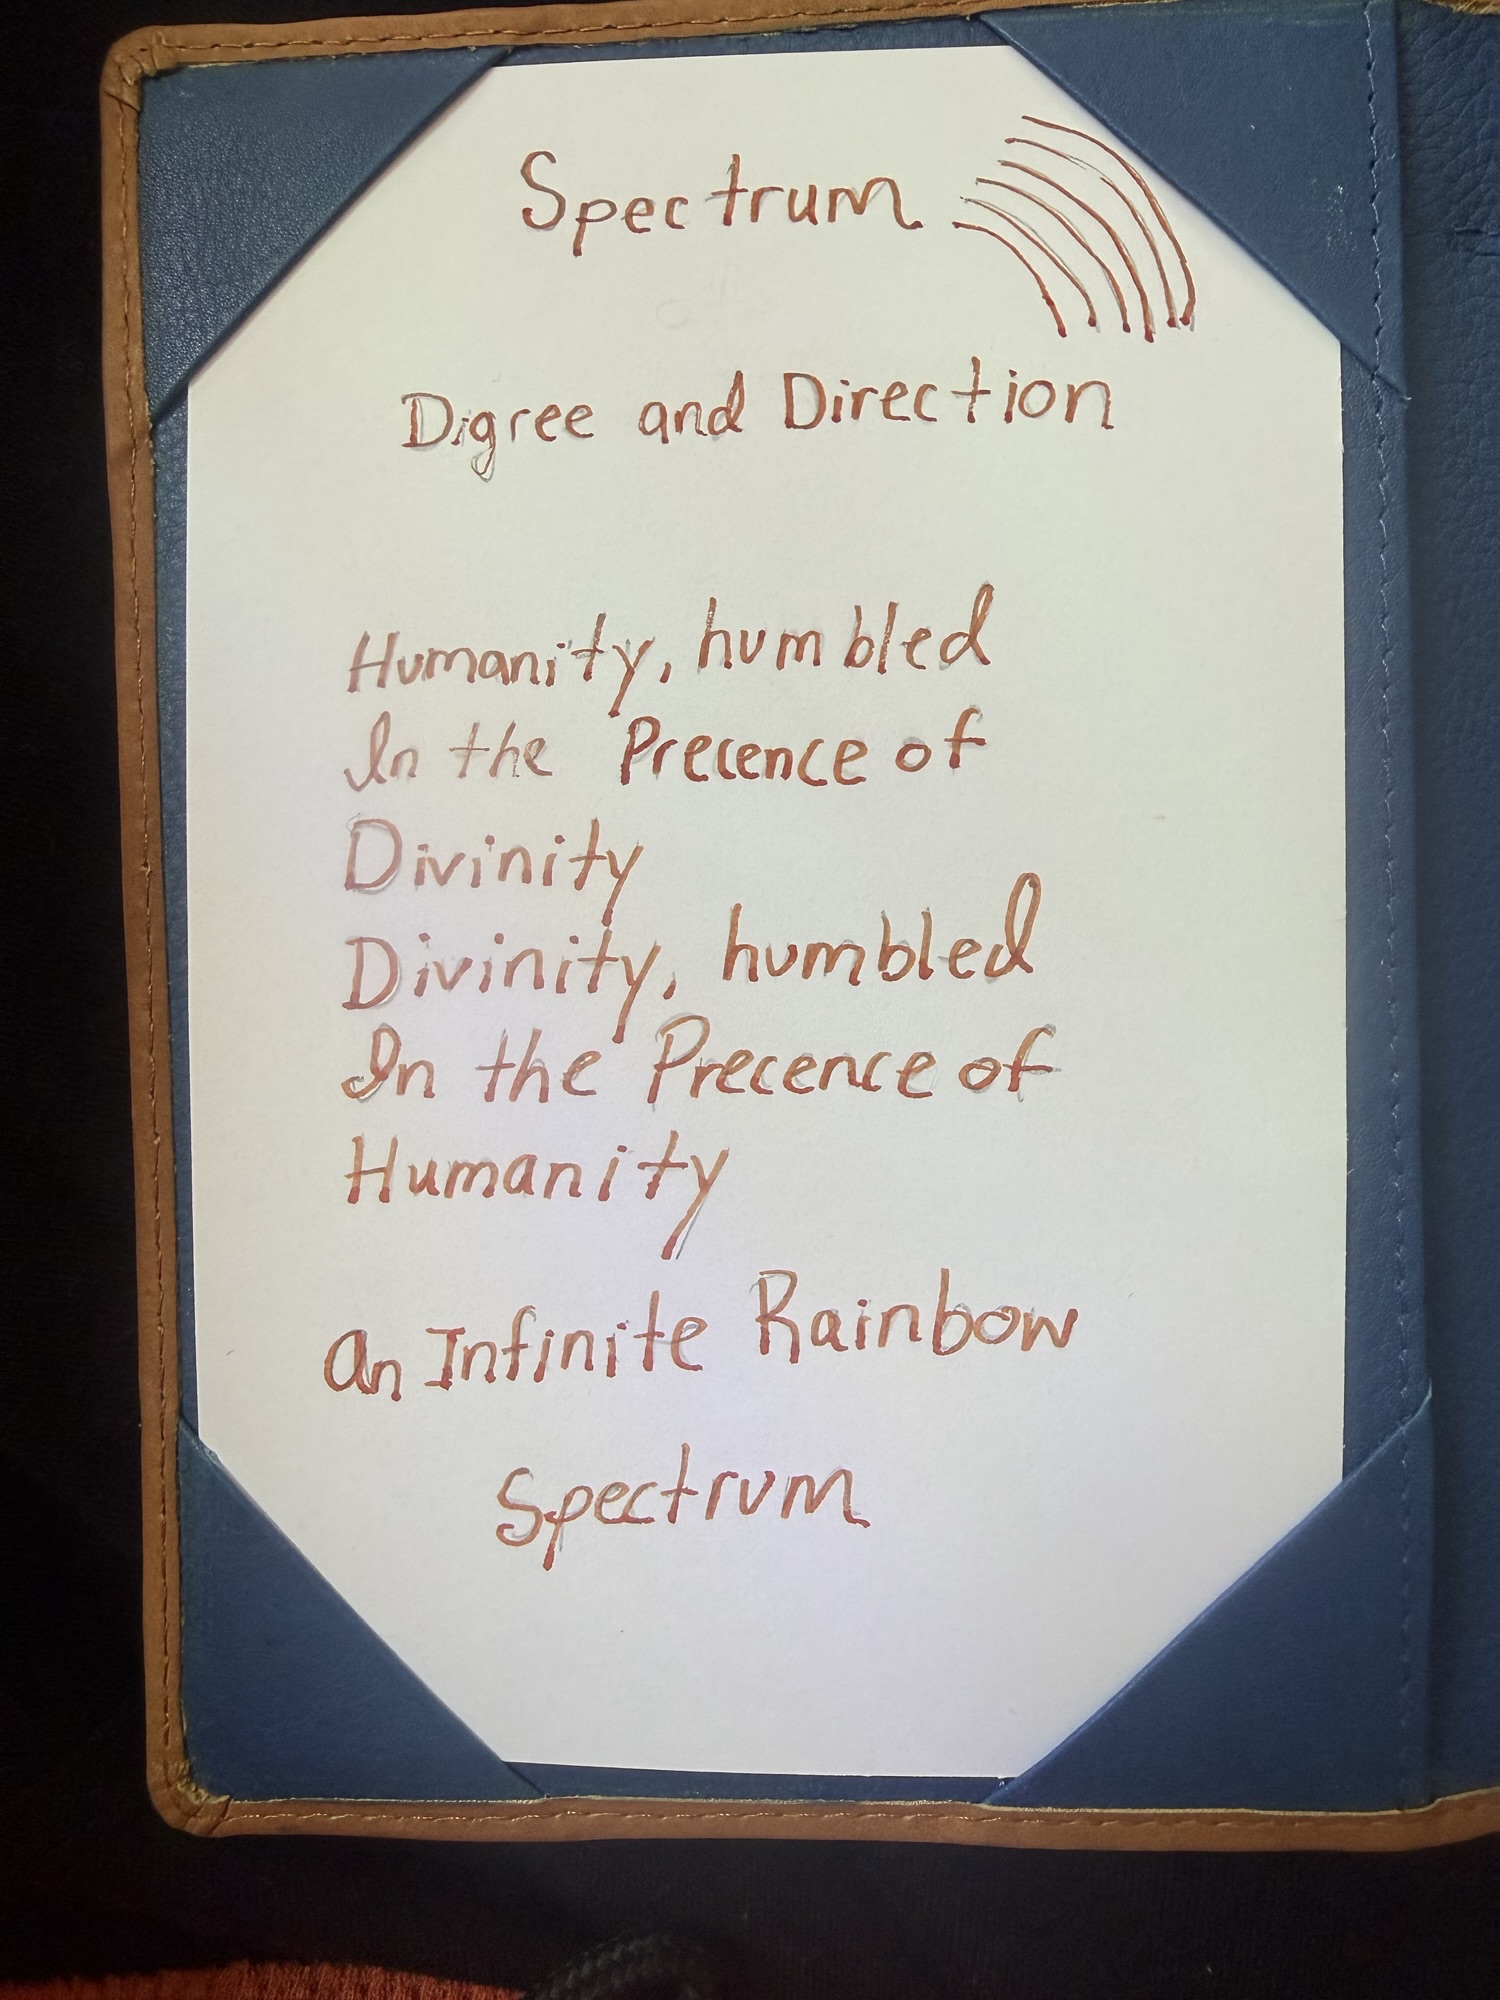 Spectrum
Digree and Direction
Humanity, humbled
In the Precence of
Divinity
Divinity, humbled
In the Precence of
Humanity
An Infinite Rainbow
Spectrum